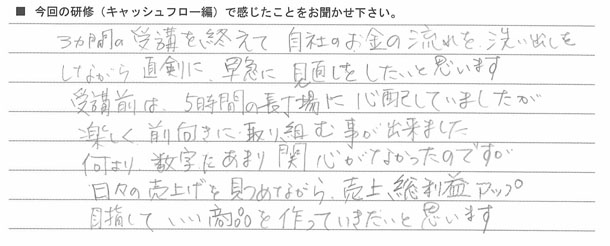 ■ 今回の研修（キャッシュフロー編）で感じたことをお聞かせ下さい。
3カ月間の受講を終えて 自社のお金の流れを、洗い出しを
しながら 真剣に、早急に 見直しをしたいと思います
受講前は、5時間の長丁場に 心配していましたが
楽しく 前向きに取り組む事が出来ました
何より 数字にあまり関心がなかったのですが
日々の売上げを見つめながら、売上、総利益アップ
目指して いい商品を作っていきたいと思います